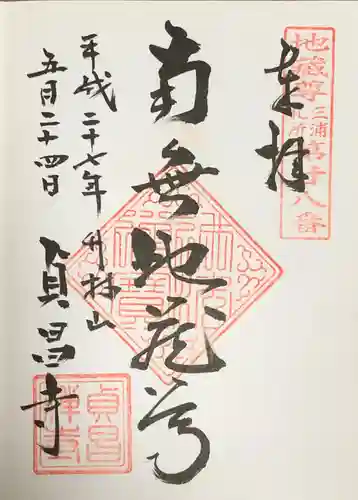 奉拝
地蔵尊三浦札所第廿八番
南無地蔵尊
平成二十七年
五月二十四日
竹林山
貞昌寺
貞昌禅寺